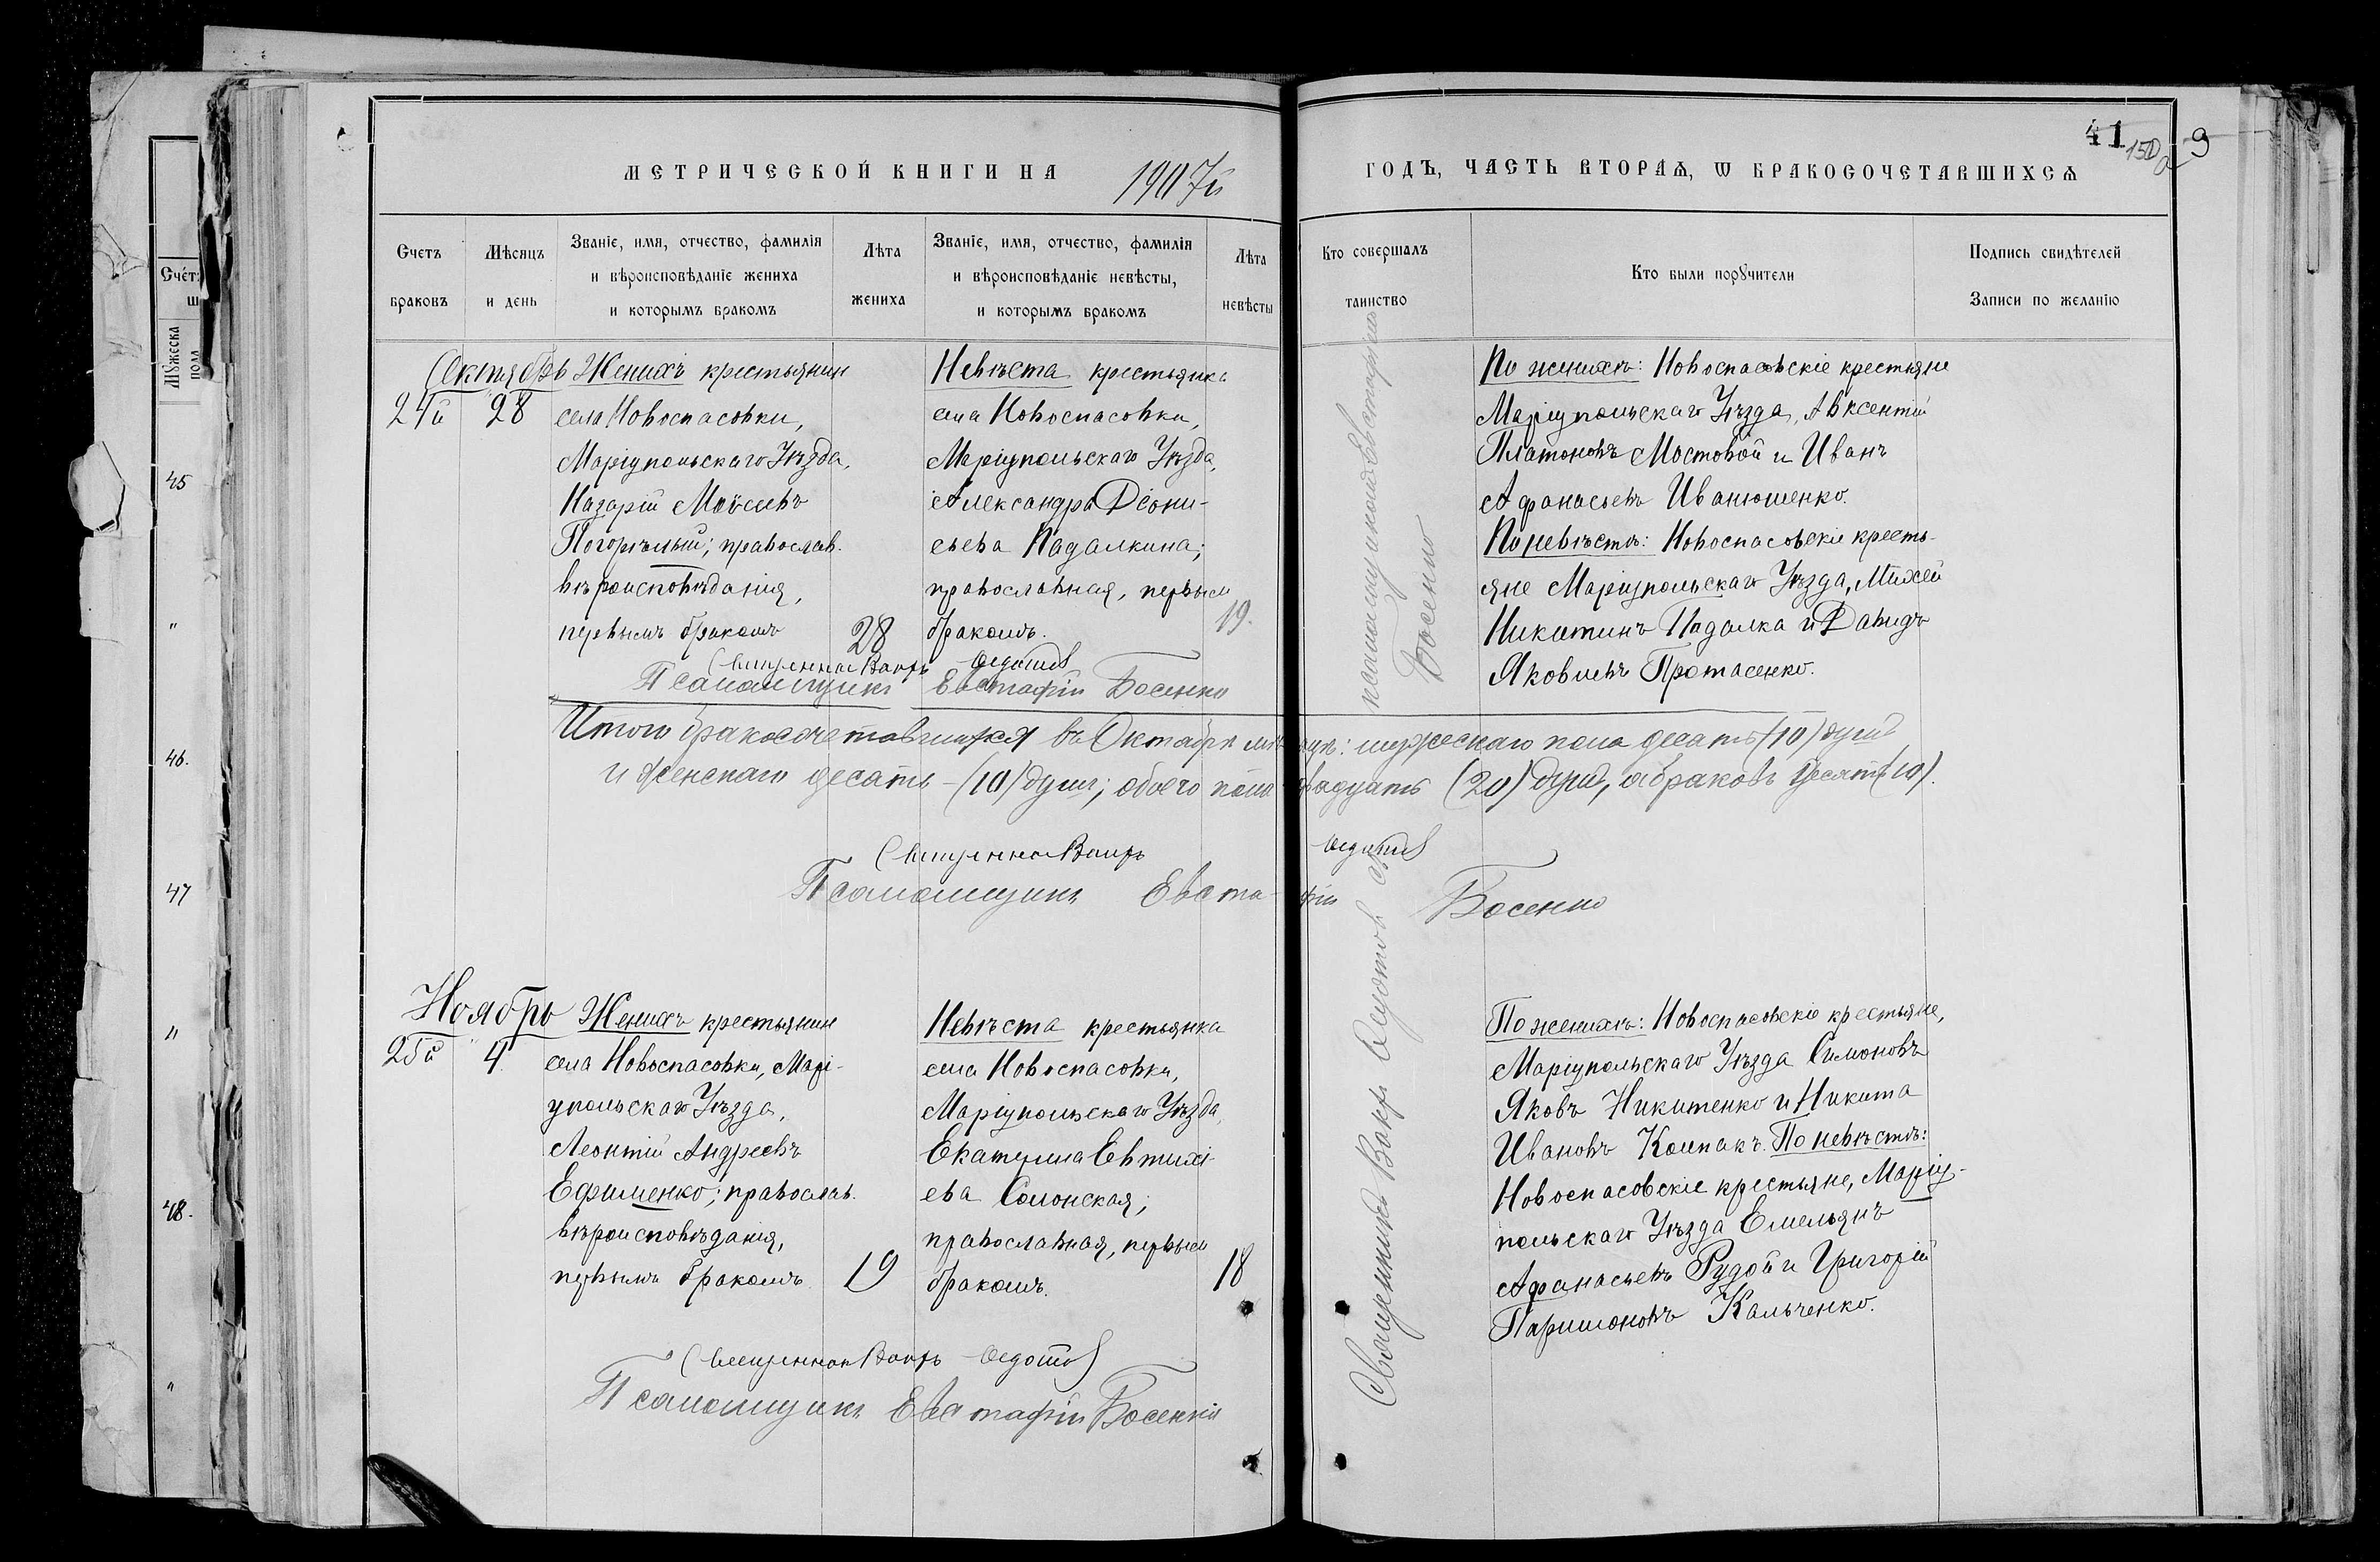 41
150
9
МЕТРИЧЕСКОЙ КНИГИ НА 1907й ГОДЪ, ЧАСТЬ ВТОРАѦ, Ѡ БРАКОСОЧЕТАВШИХСѦ
Счетъ браковъ
Мѣсяцъ и день
Званіе, имя, отчество, фамилія
и вѣроисповѣданіе жениха
и которымъ бракомъ
Лѣта жениха
Званіе, имя, отчество, фамилія
и вѣроисповѣданіе невѣсты,
и которымъ бракомъ
Лѣта невѣсты
Кто совершалъ таинство
Кто были порꙋчители
Подпись свидѣтелей
Записи по желанію
Октябрь
24й 28
Женихъ крестьянин
села Новоспасовки,
Маріупольскаго Уѣзда,
Назарій Моѵсеевъ
Погорѣлый; православ.
вѣроисповѣданія,
первымъ бракомъ
28
Невѣста крестьянка
села Новоспасовки,
Маріупольскаго Уѣзда,
Александра Діони-
сьева Падалкина;
православная, первым
бракомъ.
19.
По женихѣ: Новоспасовскіе крестьяне
Маріупольскаго Уѣзда, Авксентій
Платоновъ Мостовой и Иванъ
Афанасьевъ Иванюшенко.
По невѣстѣ: Новоспасовскіе кресть-
яне Маріупольскаго Уѣзда, Михей
Никитинъ Падалка и Давидъ
Яковлевъ Протасенко.
Псаломщикъ Евстафій Босенко
Итого бракосочетавшихся въ Октябрѣ мѣсяцѣ: мужескаго пола десять (10) душъ
и женскаго десять - (10) душ; обоего пола двадцать (20) душъ, а браковъ десять (10).
Псаломщикъ Евстафій Босенко
Ноябрь
25й 4.
Женихъ крестьянин
села Новоспасовки, Марі-
упольскаго Уѣзда,
Леонтій Андреевъ
Ефименко; православ.
вѣроисповѣданія,
первымъ бракомъ
19
Невѣста крестьянка
села Новоспасовки,
Маріупольскаго Уѣзда,
Екатерина Евтихі-
ева Солонская;
православная, первым
бракомъ.
18
По женихѣ: Новоспасовскіе крестьяне,
Маріупольскаго Уѣзда Симоновъ
Яковъ Никитенко и Никита
Ивановъ Колпакъ. По невѣстѣ:
Новоспасовскіе крестьяне, Маріу-
польскаго Уѣзда Емельянъ
Афанасьевъ Рудой и Григорій
Паримоновъ Кальченко.
Псаломщикъ Евстафій Босенко
Священникъ
псаломщикомъ Евстафіемъ
Босенко
Счет:
Мꙋжеска пола
45
"
46.
47
"
48.
"